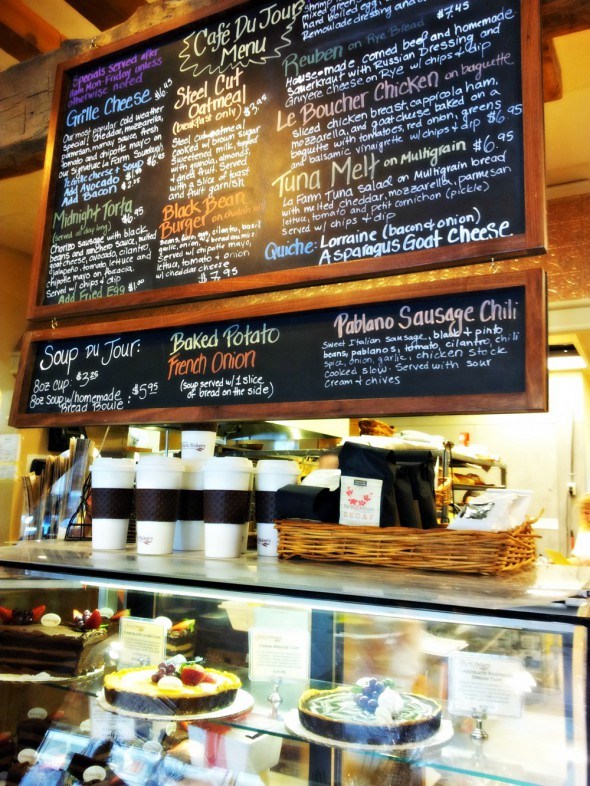 Café Du Jour
Menu
Specials served after
11am Mon-Friday unless
otherwise noted
Grille Cheese
Our most popular cold weather
special, cheddar, mozzarella,
parmesan, mornay sauce, fresh
tomato and chipotle mayo on
our signature La Farm Sourdough
Add Avocado
Add Bacon
Midnight Torta
(served all day long)
$6.95
Chorizo sausage with black
beans and ranchero sauce, melted
goat cheese, avocado, cilantro,
jalapeño, tomato, lettuce and
chipotle mayo on focaccia.
Served w/ chips & dip
Add Fried Egg $1.00
Steel Cut
Oatmeal
(breakfast only)
Steel cut oatmeal
cooked w/ brown sugar
sweetened milk, topped
with granola, almonds,
and dried fruit. Served
with a slice of toast
and fruit garnish
Black Bean
Burger
garlic, onion,
Served w/ chipotle mayo,
lettuce, onion, tomato
w/ cheddar cheese
$7.95
mixed green
hard boiled egg,
Remoulade dressing and
$7.45
Reuben on Rye Bread
Housemade corned beef and homemade
Sauerkraut with Russian Dressing and
Gruyere cheese on Rye w/ chips & dip
Le Boucher Chicken on baguette
Sliced chicken breast, cappicola ham,
mozzarella, and goat cheese baked on a
baguette with tomatoes, red onion, greens
and balsamic vinaigrette w/ chips & dip $6.95
Tuna Melt on Multigrain $6.95
La Farm Tuna Salad on Multigrain bread
with melted cheddar, mozzarella, parmesan
lettuce, tomato and petit cornichon (pickle)
Served w/ chips & dip
Quiche: Lorraine (bacon & onion)
Asparagus Goat Cheese
Soup Du Jour:
8oz cup: $2.25
8oz Soup w/ homemade
Bread Boule: $5.95
Baked Potato
French Onion
(soup served w/ 1 slice
of bread on the side)
Pablano Sausage Chili
Sweet Italian sausage, black & pinto
beans, pablanos, tomato, cilantro, chili
spice, onion, garlic, chicken stock
cooked slow. Served with sour
cream & chives
DECAF